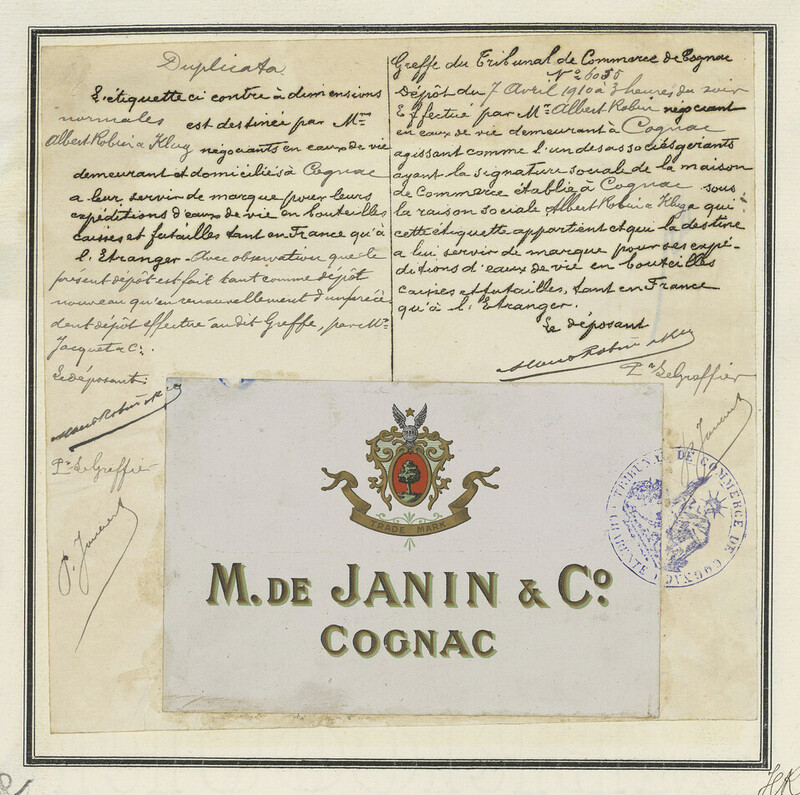 Duplicata
L'étiquette ci contre à dimensions
normales est destinée par Mrs
Albert Robin & Klug négociants en eaux de vie
demeurant et domiciliés à Cognac
a leur servir de marque pour leurs
expéditions d'eaux de vie en bouteilles
caisses et futailles tant en France qu'à
l'Etranger - Avec observation que le
présent dépôt est fait tant comme dépôt
nouveau qu'en renouvellement d'un précé-
dent dépôt effectué au dit Greffe, par Mrs
Jacquet & Co.
Le déposant
Albert Robin & Klug
Pr Le Greffier
Greffe du Tribunal de Commerce de Cognac
No 6055
Dépôt du 7 Avril 1910 à 3 heures du soir
Effectué par Mr Albert Robin négociant
en eaux de vie demeurant à Cognac
agissant comme l'un des associés gérants
ayant la signature sociale de la maison
de Commerce établie à Cognac sous
la raison sociale Albert Robin & Klug qui
cette étiquette appartient et qui la destine
a lui servir de marque pour ses expé-
ditions d'eaux de vie en bouteilles
caisses et futailles, tant en France
qu'à l'Etranger.
Le déposant
Albert Robin & Klug
Pr Le Greffier
TRADE MARK
M. DE JANIN & Co.
COGNAC
TRIBUNAL DE COMMERCE DE COGNAC
CHARENTE
HK